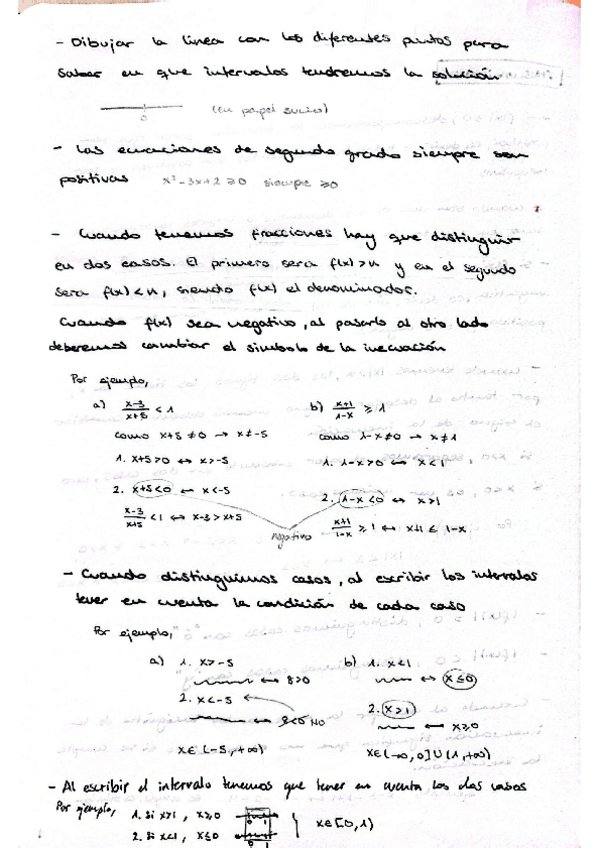 - Dibujar la línea con los diferentes puntos para
saber en que intervalos tendremos la solución
0 (en papel sucio)
- Las ecuaciones de segundo grado siempre son
positivas x²-3x+2 ≥0 siempre ≥0
- Cuando tenemos fracciones hay que distinguir
en dos casos. El primero sera f(x)>n y en el segundo
sera f(x)<n, siendo f(x) el denominador.
Cuando f(x) sea negativo, al pasarlo al otro lado
deberemos cambiar el simbolo de la inecuación
Por ejemplo,
a) x-3/x+5 < 1 b) x+1/1-x ≥ 1
como x+5 ≠ 0 → x≠-5 como 1-x≠0 → x≠1
1. x+5>0 ↔ x>-5 1. 1-x>0 ↔ x<1
2. x+5<0 ↔ x<-5 2. 1-x<0 ↔ x>1
x-3/x+5 <1 ↔ x-3>x+5 negativo x+1/1-x ≥1 ↔ x+1 ≤ 1-x
- Cuando distinguimos casos, al escribir los intervalos
tener en cuenta la condición de cada caso
Por ejemplo,
a) 1. x>-5 b) 1. x<1
↔ 8>0 ↔ x≤0
2. x<-5 2. x>1
↔ 8<0 NO ↔ x≥0
x∈(-5,+∞) x∈(-∞,0]∪(1,+∞)
- Al escribir el intervalo tenemos que tener en cuenta los dos casos
Por ejemplo, 1. Si x>1, x≥0 0 1
2. Si x<1, x≤0 0 1 x∈[0,1)